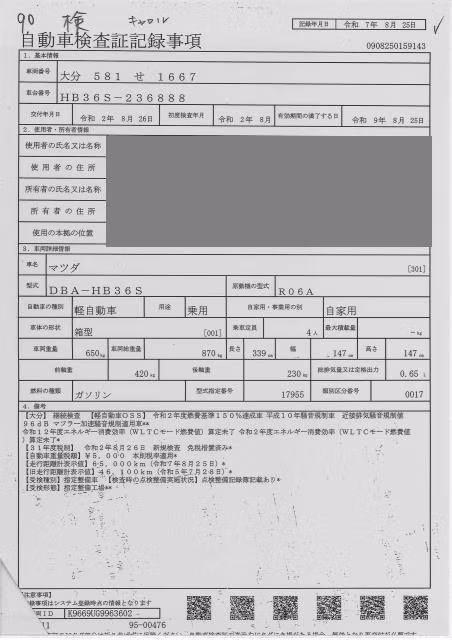 90. 検 キャロル
記録年月日 令和 7年 8月 25日
自動車検査証記録事項
0908250159143
1. 基本情報
車両番号 大分 581 せ 1667
車台番号 HB36S-236888
交付年月日 令和 2年 8月 26日 初度検査年月 令和 2年 8月 有効期間の満了する日 令和 9年 8月 25日
2. 使用者・所有者情報
使用者の氏名又は名称
使用者の住所
所有者の氏名又は名称
所有者の住所
使用の本拠の位置
3. 車両詳細情報
車名 マツダ [301]
型式 DBA-HB36S 原動機の型式 R06A
自動車の種別 軽自動車 用途 乗用 自家用・事業用の別 自家用
車体の形状 箱型 [001] 乗車定員 4人 最大積載量 -kg
車両重量 650kg 車両総重量 870kg 長さ 339cm 幅 147cm 高さ 147cm
前軸重 420kg 後軸重 230kg 総排気量又は定格出力 0.65L
燃料の種類 ガソリン 型式指定番号 17955 類別区分番号 0017
4. 備考
【大分】 継続検査 【軽自動車OSS】 令和2年度燃費基準150%達成車 平成10年騒音規制車 近接排気騒音規制値
96dB マフラー加速騒音規制適用車**
令和12年度エネルギー消費効率(WLTCモード燃費値)算定未了 令和2年度エネルギー消費効率(WLTCモード燃費値
)算定未了*
【31年度税制】 令和2年8月26日 新規検査 免税措置済み*
【自動車重量税額】¥5,000 本則税率適用*
【走行距離計表示値】65,000km(令和7年8月25日)*
【旧走行距離計表示値】46,100km(令和5年7月28日)*
【受検種別】指定整備車 【検査時の点検整備実施状況】点検整備記録簿記載あり*
【受検形態】指定整備工場**
注意事項】
録事項はシステム登録時点の情報となります
両ID K9669UG9963602
11 95-00476